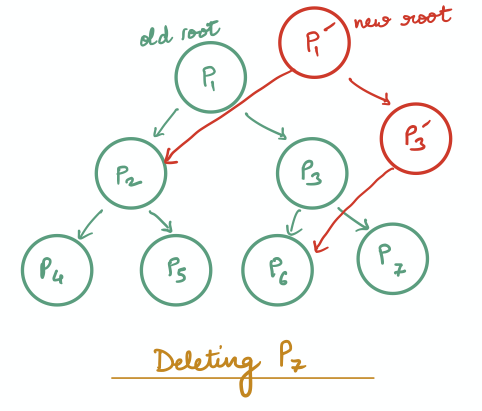 old root
new root
P₁
P₁′
P₂
P₃
P₃′
P₄
P₅
P₆
P₇
Deleting P₇